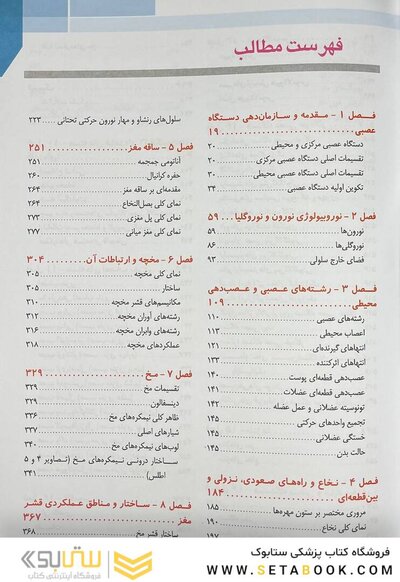 فهرست مطالب
فصل ۱ - مقدمه و سازمان‌دهی دستگاه
عصبی ۱۹
دستگاه عصبی مرکزی و محیطی ۲۰
تقسیمات اصلی دستگاه عصبی مرکزی ۲۰
تقسیمات اصلی دستگاه عصبی محیطی ۳۰
تکوین اولیه دستگاه عصبی ۳۴
فصل ۲ - نوروبیولوژی نورون و نوروگلیا ۵۹
نورون‌ها ۵۹
نوروگلی‌ها ۸۶
فضای خارج سلولی ۹۳
فصل ۳ - رشته‌های عصبی و عصب‌دهی
محیطی ۱۰۹
رشته‌های عصبی ۱۱۰
اعصاب محیطی ۱۱۳
انتهاهای گیرنده‌ای ۱۲۱
انتهاهای اثرکننده ۱۳۳
عصب‌دهی قطعه‌ای پوست ۱۴۰
عصب‌دهی قطعه‌ای عضلات ۱۴۱
تونوسیته عضلانی و عمل عضله ۱۴۲
تجمیع واحدهای حرکتی ۱۴۵
خستگی عضلانی ۱۴۵
حالت بدن ۱۴۵
فصل ۴ - نخاع و راه‌های صعودی، نزولی و
بین‌قطعه‌ای ۱۸۴
مروری مختصر بر ستون مهره‌ها ۱۸۵
نمای کلی نخاع ۱۹۰
۱۹۷
سلول‌های رنشاو و مهار نورون حرکتی تحتانی ۲۲۳
فصل ۵ - ساقه مغز ۲۵۱
آناتومی جمجمه ۲۵۱
حفره کرانیال ۲۶۰
مقدمه‌ای بر ساقه مغز ۲۶۴
نمای کلی بصل‌النخاع ۲۶۴
نمای کلی پل مغزی ۲۷۳
نمای کلی مغز میانی ۲۷۷
فصل ۶ - مخچه و ارتباطات آن ۳۰۴
نمای کلی مخچه ۳۰۵
ساختار ۳۰۵
مکانیسم‌های قشر مخچه ۳۱۰
رشته‌های آوران مخچه ۳۱۲
رشته‌های وابران مخچه ۳۱۶
عملکردهای مخچه ۳۱۸
فصل ۷ - مخ ۳۲۹
تقسیمات مخ ۳۲۹
دینسفالون ۳۲۹
ظاهر کلی نیمکره‌های مخ ۳۳۶
شیارهای اصلی ۳۳۷
لوب‌های نیمکره‌های مخ
ساختار درونی نیمکره‌های مخ (تصاویر ۴ و ۵
اطلس) ۳۴۱
فصل ۸ - ساختار و مناطق عملکردی قشر
مغز ۳۶۷
ساختار قشر مخ ۳۶۸
فروشگاه کتاب پزشکی ستابوک
WWW.SETABOOK.COM
ستابوک
فروشگاه اینترنتی کتاب